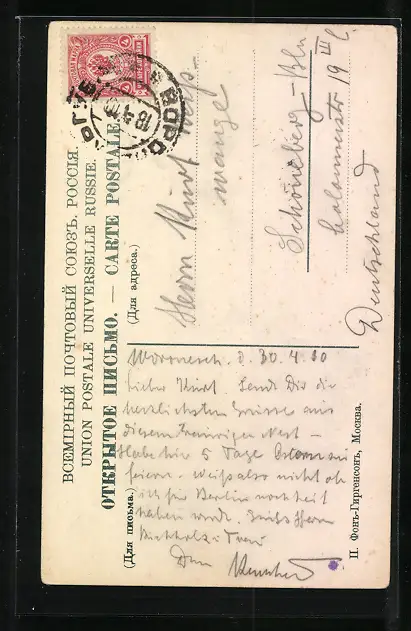 ВСЕМІРНЫЙ ПОЧТОВЫЙ СОЮЗЪ. РОССІЯ.
UNION POSTALE UNIVERSELLE RUSSIE.
ОТКРЫТОЕ ПИСЬМО. — CARTE POSTALE
(Для письма.)
(Для адреса.)
Herrn Kurt
Schöneberg-Bln
19 III
Deutschland
d. 30.4.10
Lieber Kurt. Sende Dir die
herzlichsten Grüsse aus
diesem traurigen Nest –
Habe hier 5 Tage Ostern zu
feiern. Weiß also nicht ob
ich für Berlin noch Zeit
haben werde. Grüß Herrn
Buchholz
Dein
П. Фонъ-Гиргенсонъ, Москва.